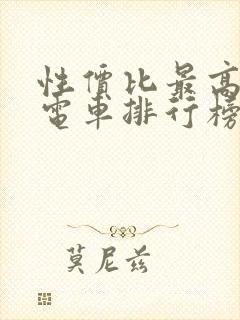 性價比最高
電車排行榜
莫尼兹